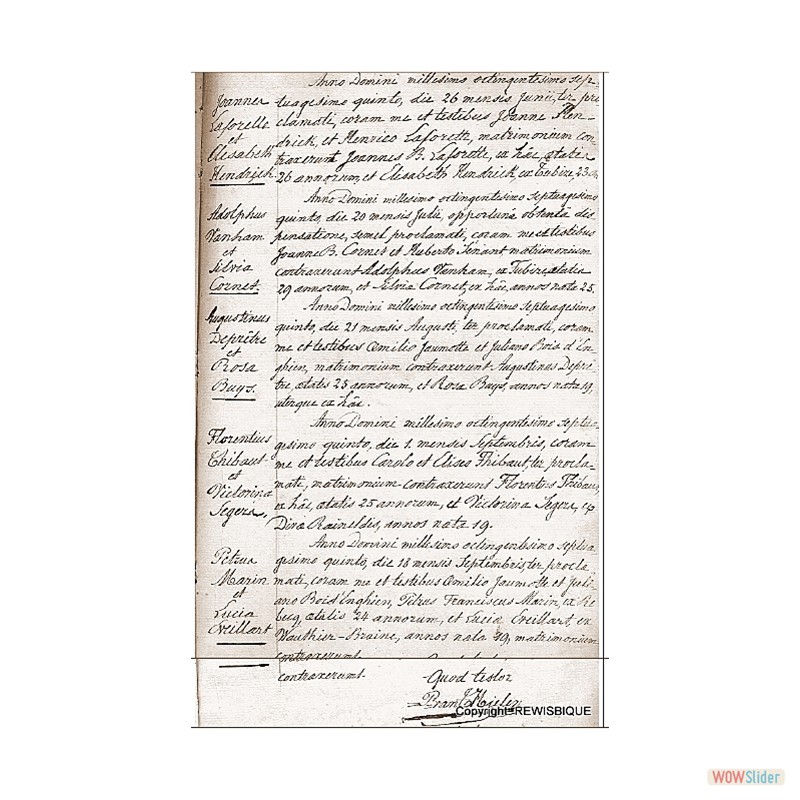 Anno Domini millesimo octingentesimo sep-
Joannes
Laforette
et
Elisabeth
Hendrick
tuagesimo quinto, die 26 mensis Junii, ter pro
clamati, coram me et testibus Joanne Hen-
drick, et Henrico Laforette, matrimonium con-
traxerunt Joannes B. Laforette, ex hâc, ætatis
26 annorum, et Elisabeth Hendrick, ex Tubize, 23
Adolphus
Vanham
et
Silvia
Cornet.
Anno Domini millesimo octingentesimo septuagesimo
quinto, die 20 mensis Julii, opportunâ obtentâ dis
pensatione, semel proclamati, coram me et testibus
Joanne B. Cornet et Huberto Senant matrimonium
contraxerunt Adolphus Vanham, ex Tubize, ætatis
29 annorum, et Silvia Cornet, ex hâc, annos nata 25.
Augustinus
Deprêtre
et
Rosa
Buys.
Anno Domini millesimo octingentesimo septuagesimo
quinto, die 21 mensis Augusti, ter proclamati, coram
me et testibus Œmilio Jaumotte et Juliano Bois d'En-
ghien, matrimonium contraxerunt Augustinus Deprê-
tre, ætatis 25 annorum, et Rosa Buys, annos nata 19,
uterque ex hâc.
Florentius
Thibaut
et
Victorina
Segers.
Anno Domini millesimo octingentesimo septua-
gesimo quinto, die 1 mensis Septembris, coram
me et testibus Carolo et Eliseo Thibaut, ter procla-
mati, matrimonium contraxerunt Florentius Thibaut,
ex hâc, ætatis 25 annorum, et Victorina Segers, ex
Divâ Raineldis, annos nata 19.
Petrus
Marin
et
Lucia
Creillart
Anno Domini millesimo octingentesimo septua
gesimo quinto, die 18 mensis Septembris ter procla
mati, coram me et testibus Œmilio Jaumotte et Juli-
ano Bois d'Enghien, Petrus Franciscus Marin, ex Re
becq, ætatis 24 annorum, et Lucia Creillart, ex
Wauthier-Braine, annos nata 19, matrimonium
contraxerunt
contraxerunt.
Quod testor
Copyright-REWISBIQUE
WOWSlider